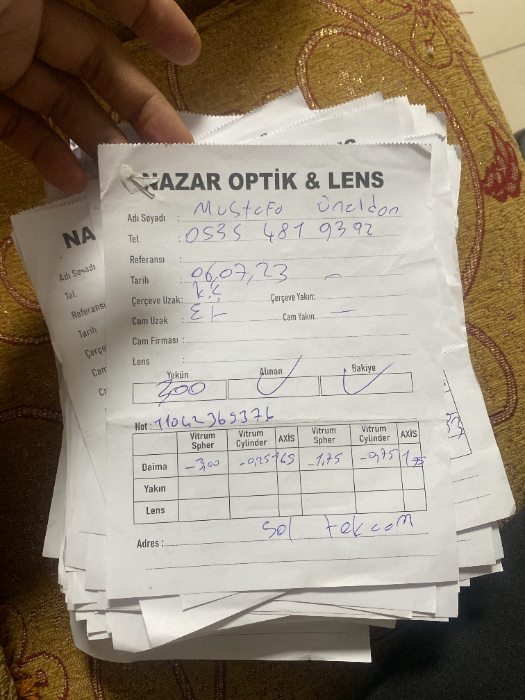 NAZAR OPTİK & LENS
Adı Soyadı : Mustafa Ünaldon
Tel. : 0535 481 9392
Referansı :
Tarih : 06,07,23
Çerçeve Uzak: K.Ç Çerçeve Yakın: —
Cam Uzak : Cam Yakın: —
Cam Firması :
Lens :
Yekün Alınan Bakiye
300 ✓ ✓
Not : 11042369376
Vitrum Spher Vitrum Cylinder AXİS Vitrum Spher Vitrum Cylinder AXİS
Daima -3,00 -0,25 165 -1,75 -0,75
Yakın
Lens
Adres : Sol tek cam
NA
Adı Soyadı
Tel.
Referansı
Tarih
Çerçe
Cam